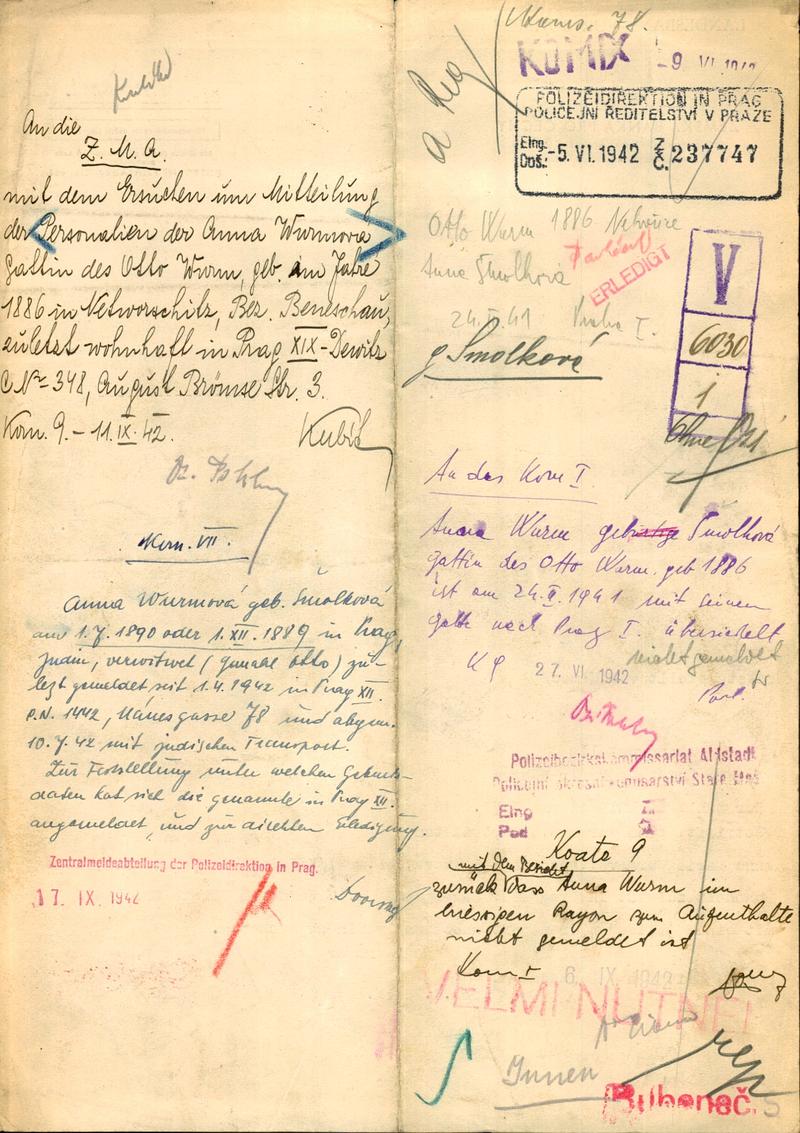 An die
Z. M. A.
mit dem Ersuchen um Mitteilung
der Personalien der Anna Wurmova
Gattin des Otto Wurm, geb. im Jahre
1886 in Networschitz, Bez. Beneschau,
zuletzt wohnhaft in Prag XIX-Dewitz
C Nr 348, August Brömse Str. 3.
Kom. 9. - 11. IX. 42.
Kom. VII.
Anna Wurmová geb. Smolková
am 1.7.1890 oder 1.XII.1889 in Prag,
Jüdin, verwitwet (Gemahl Otto) zu-
letzt gemeldet seit 1.4.1942 in Prag XII.
P.N. 1442, Mánesgasse 78 und abgem.
10.7.42 mit jüdischen Transport.
Zur Feststellung unter welchen Geburts-
daten hat sich die genannte in Prag XII.
angemeldet, und zur direkten Erledigung.
Zentralmeldeabteilung der Polizeidirektion in Prag.
17. IX. 1942
78.
-9 VI. 1942
a Reg
POLIZEIDIREKTION IN PRAG
POLICEJNÍ ŘEDITELSTVÍ V PRAZE
Eing.
Doš.: -5. VI. 1942 Z. Č. 237747
Otto Wurm 1886
Anna Smolková
ERLEDIGT
24. II 41 Praha I.
V
6030
1
g Smolková
An das Kom I.
Anna Wurm geb Smolková
gattin des Otto Wurm. geb 1886
ist am 24.II.1941 mit seinem
Gatte nach Prag I. übersiedelt
27. VI. 1942
nicht gemeldet
Polizeibezirkskommissariat Altstadt
Policejní okresní komisařství Staré Město
Eing
Pod
Koate 9
mit dem Bericht
zurück dass Anna Wurm im
hiesigen Rayon zum Aufenthalte
nicht gemeldet ist
Kom I
6. IX. 1942
VELMI NUTNÉ!
Innen
Bubeneč.
5